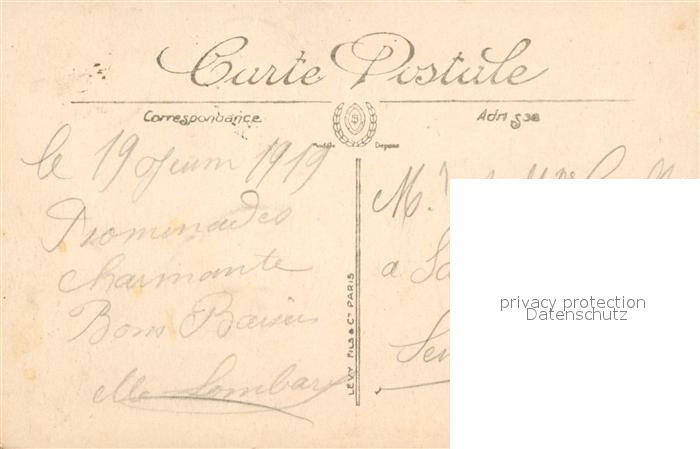 Carte Postale
Correspondance
Modèle Déposé
le 19 Juin 1919
Promenades
charmante
Bons Baisers
LEVY FILS & Cie PARIS
M.
a
privacy protection
Datenschutz